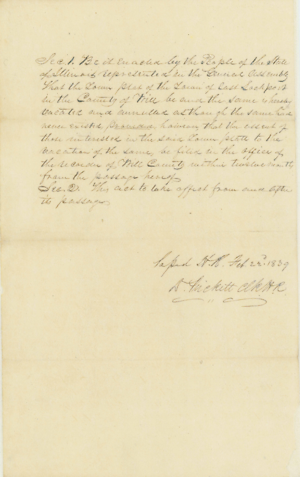 Sec 1. Be it enacted by the People of the State
of Illinois represented in the General Assembly
That the Town plat of the Town of East Lockport
in the County of Will be and the same is hereby
vacated and annulled as tho of the same had
never existed provided however that the assent of
those interested in the said Town plat to the
vacation of the same, be filed in the office of
the recorder of Will County within twelve months
from the passage hereof
Sec. 2. This act to take effect from and after
its passage.
Passed H. R. Feb 22d 1839
D. Prickett Clk H R